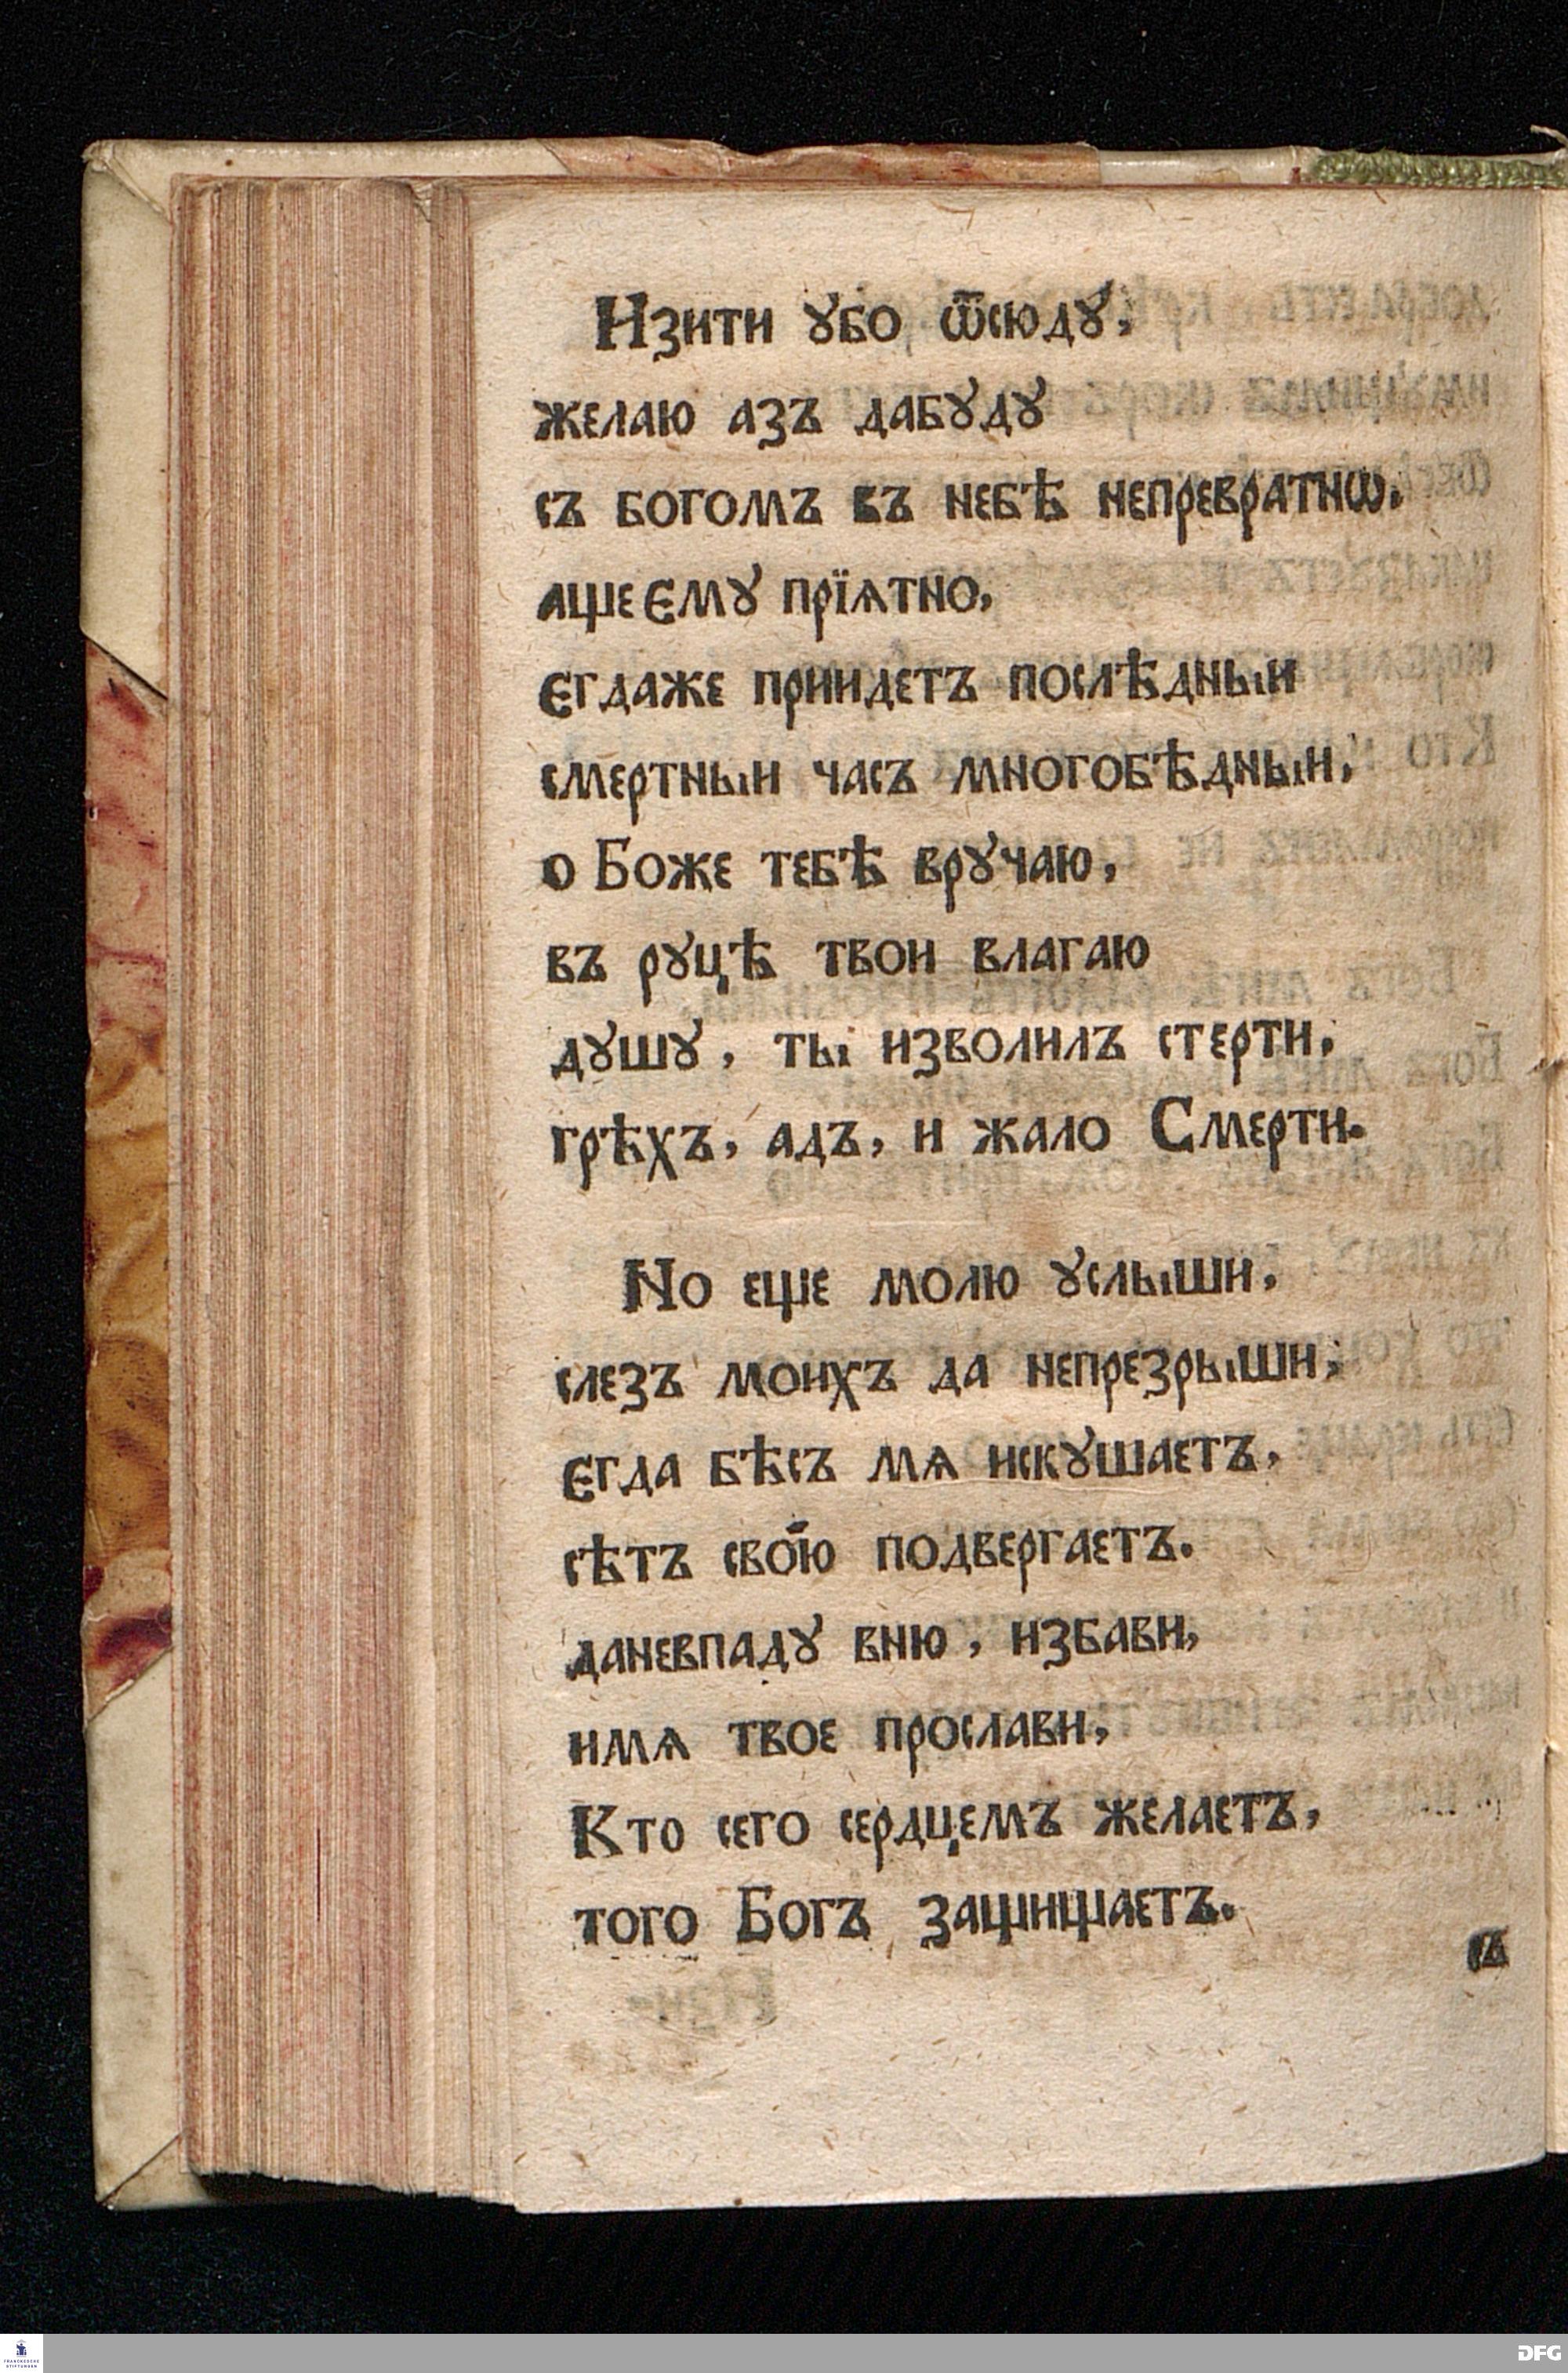 Изити ꙋбо ѿсюдꙋ,
желаю азъ дабꙋдꙋ
съ богомъ въ небѣ непревратнѡ.
аще Емꙋ прїѧтно,
Егдаже приидетъ послѣдныи
смертныи часъ многобѣдныи,
о Боже тебѣ врꙋчаю,
въ рꙋцѣ твои влагаю
дꙋшꙋ, ты изволилъ стерти,
грѣхъ, адъ, и жало Смерти.
Но еще молю ꙋслыши,
слезъ моихъ да непрезрыши,
Егда бѣсъ мѧ искꙋшаетъ,
сѣтъ свою подвергаетъ.
даневпадꙋ вню, избави,
имѧ твое прослави,
Кто сего сердцемъ желаетъ,
того Богъ защищаетъ.
съ
FRANCKESCHE
STIFTUNGEN
DFG